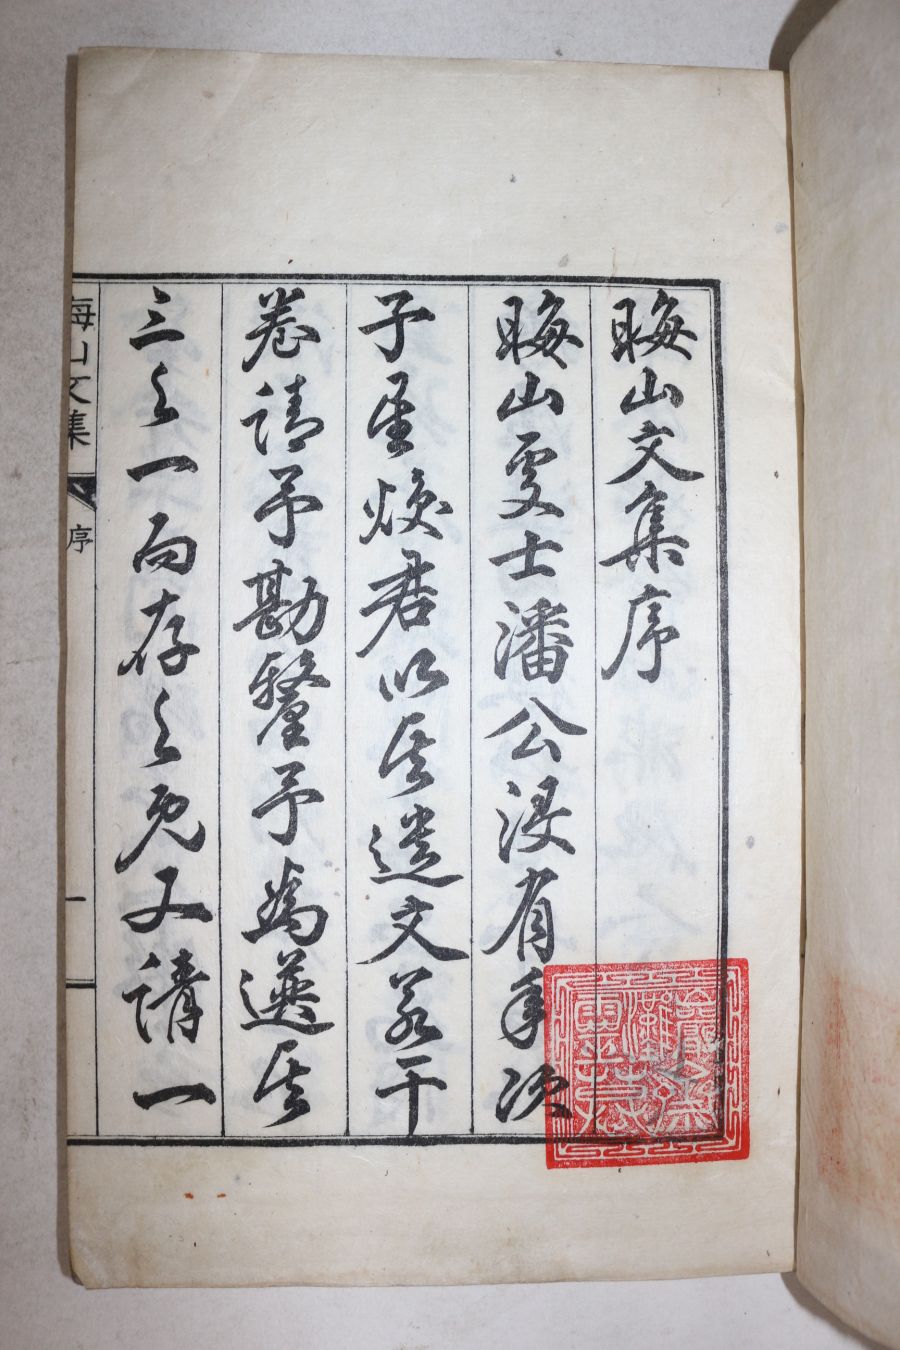 晦山文集序
晦山處士潘公浸有年次
子聖煥君以其遺文若干
卷請予勘釐予爲選其
三之一而存之旣又請一
晦山文集
序
一